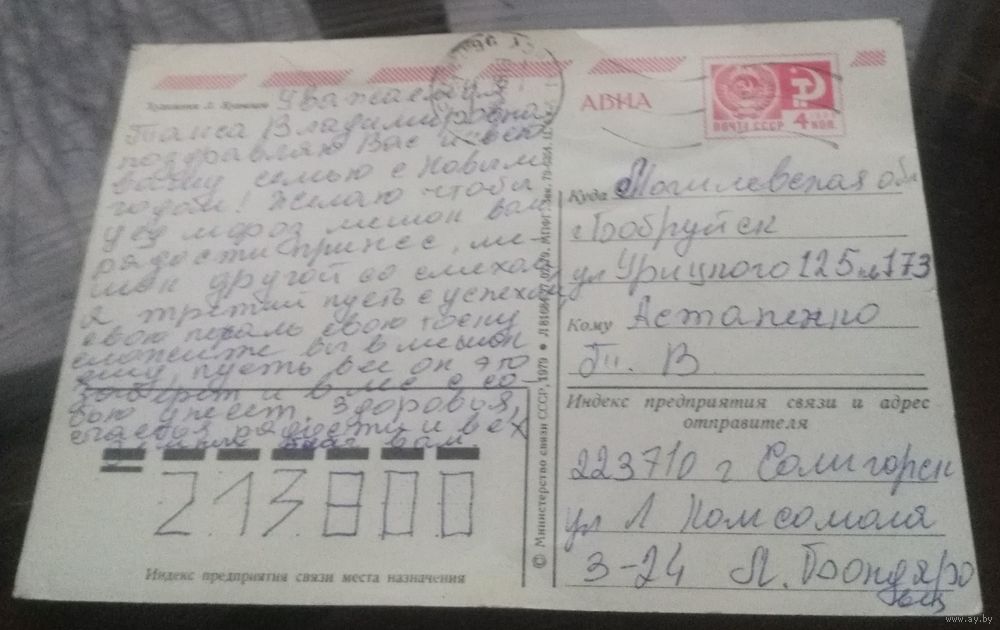 АВИА
ПОЧТА СССР 4 КОП.
Художник Л.
Уважаемая
Таиса Владимировна
поздравляю Вас и всю
вашу семью с Новым
годом! Желаю чтобы
дед мороз мешок вам
радости принес, ме-
шок другой со смехом
а третий пусть с успехом
свою печаль свою тоску
сложите вы в мешок
ему, пусть все он это
заберет и в лес с со-
бою унесет. Здоровья,
счастья радости и всех
благ вам.
213800
Индекс предприятия связи места назначения
© Министерство связи СССР, 1979
Куда Могилевская обл
г Бобруйск
ул Урицкого 125 кв 173
Кому Астапенко
Т. В
Индекс предприятия связи и адрес
отправителя
223710 г Солигорск
ул Л Комсомола
3-24 Л. Бондаро
вец
www.ay.by